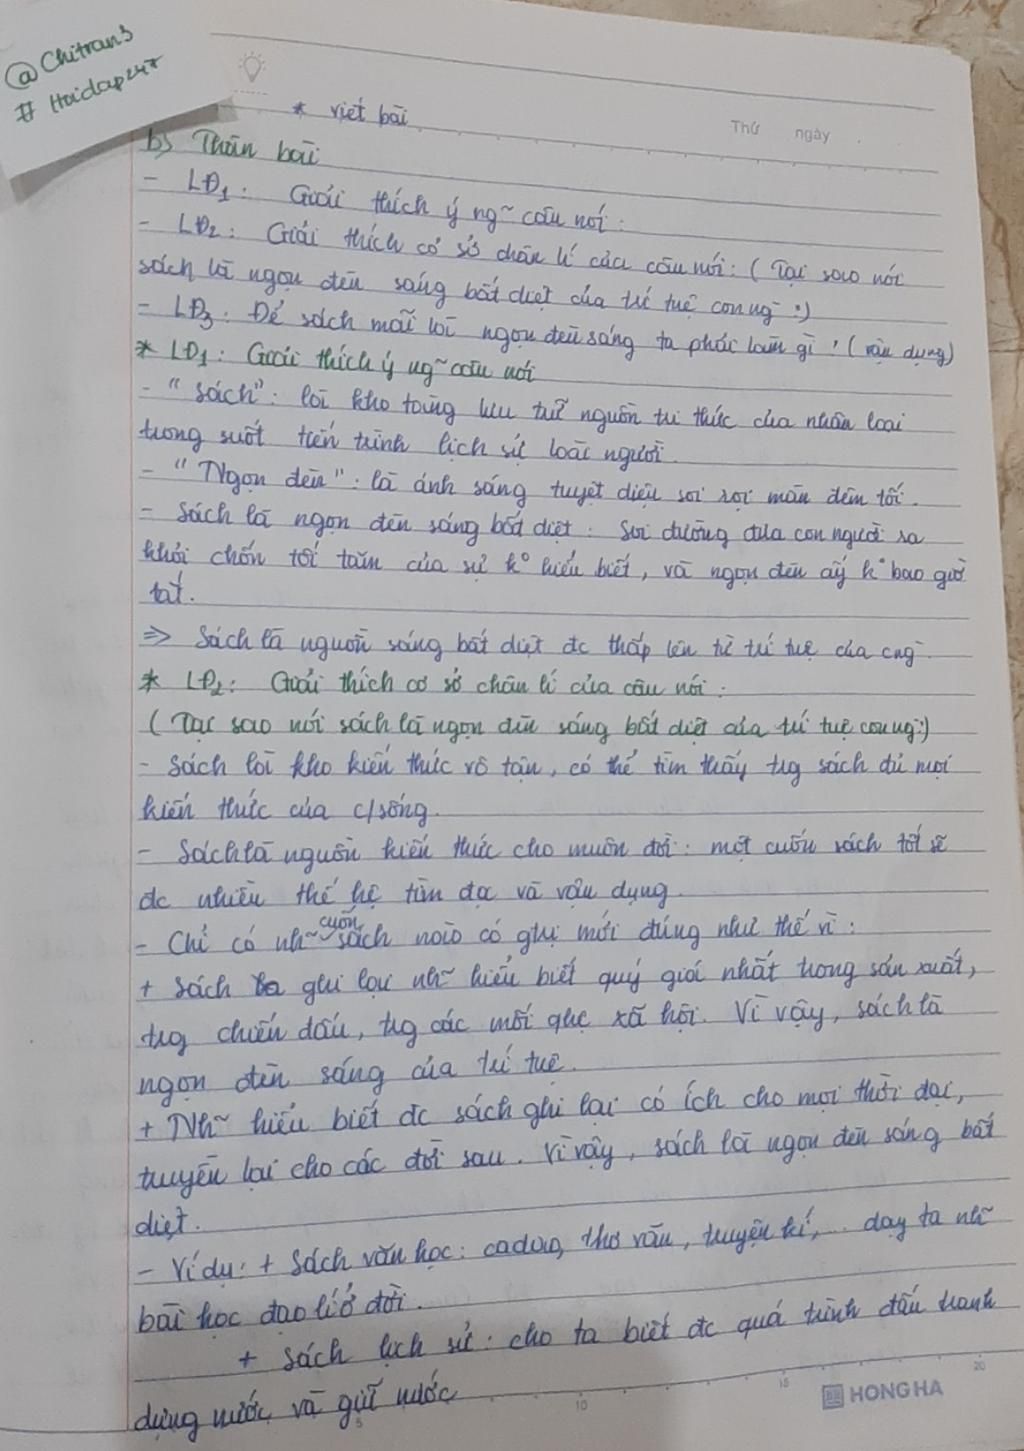 @Chitran3
# Hoidap247
* viết bài
Thứ ngày
b) Thân bài
- LĐ1: Giải thích ý ng~ câu nói:
- LĐ2: Giải thích cơ sở chân lí của câu nói: (Tại sao nói
sách là ngọn đèn sáng bất diệt của trí tuệ con ng`:)
- LĐ3: Để sách mãi là ngọn đèn sáng ta phải làm gì? (vận dụng)
* LĐ1: Giải thích ý ng~ câu nói
- "Sách": là kho tàng lưu trữ nguồn tri thức của nhân loại
trong suốt tiến trình lịch sử loài người.
- "Ngọn đèn": là ánh sáng tuyệt diệu soi rọi màn đêm tối.
- Sách là ngọn đèn sáng bất diệt: Soi đường đưa con người ra
khỏi chốn tối tăm của sự k° hiểu biết, và ngọn đèn ấy k° bao giờ
tắt.
=> Sách là nguồn sáng bất diệt đc thắp lên từ trí tuệ của cng`.
* LĐ2: Giải thích cơ sở chân lí của câu nói:
(Tại sao nói sách là ngọn đèn sáng bất diệt của trí tuệ con ng`:)
- Sách là kho kiến thức vô tận, có thể tìm thấy trg sách đủ mọi
kiến thức của c/sống.
- Sách là nguồn kiến thức cho muôn đời: một cuốn sách tốt sẽ
đc nhiều thế hệ tìm đọc và vận dụng.
- Chỉ có nh~ cuốn sách nào có gtrị mới đúng như thế vì:
+ Sách ghi lại nh~ hiểu biết quý giá nhất trong sản xuất,
trg chiến đấu, trg các mối qhệ xã hội. Vì vậy, sách là
ngọn đèn sáng của trí tuệ.
+ Nh~ hiểu biết đc sách ghi lại có ích cho mọi thời đại,
truyền lại cho các đời sau. Vì vậy, sách là ngọn đèn sáng bất
diệt.
- Ví dụ: + Sách văn học: ca dao, thơ văn, truyện kí,... dạy ta nh~
bài học đạo lí ở đời.
+ Sách lịch sử: cho ta biết đc quá trình đấu tranh
dựng nước và giữ nước
5 10 15 20
HONG HA